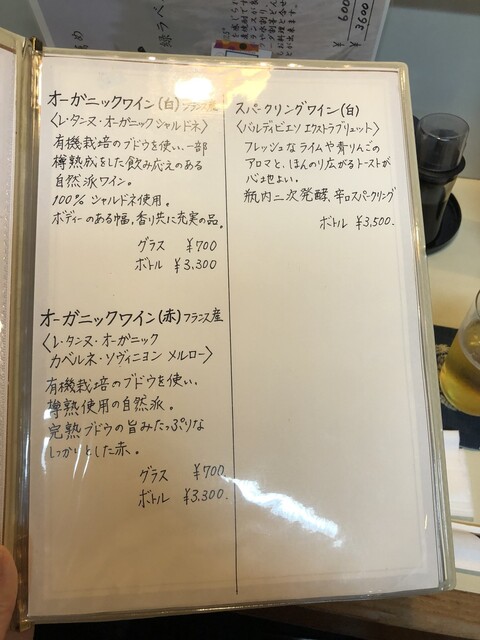 オーガニックワイン(白)フランス産
〈レ・タンヌ・オーガニック シャルドネ〉
有機栽培のブドウを使い、一部
樽熟成をした飲み応えのある
自然派ワイン。
100% シャルドネ使用。
ボディーのある幅、香り共に充実の品。
グラス ¥700
ボトル ¥3,300
オーガニックワイン(赤)フランス産
〈レ・タンヌ・オーガニック
カベルネ・ソヴィニヨン メルロー〉
有機栽培のブドウを使い、
樽熟使用の自然派。
完熟ブドウの旨みたっぷりな
しっかりとした赤。
グラス ¥700
ボトル ¥3,300.
スパークリングワイン(白)
〈バルディビエソ エクストラブリュット〉
フレッシュなライムや青りんごの
アロマと、ほんのり広がるトーストが
心地よい。
瓶内二次発酵、辛口スパークリング
ボトル ¥3,500.
¥600
¥3600